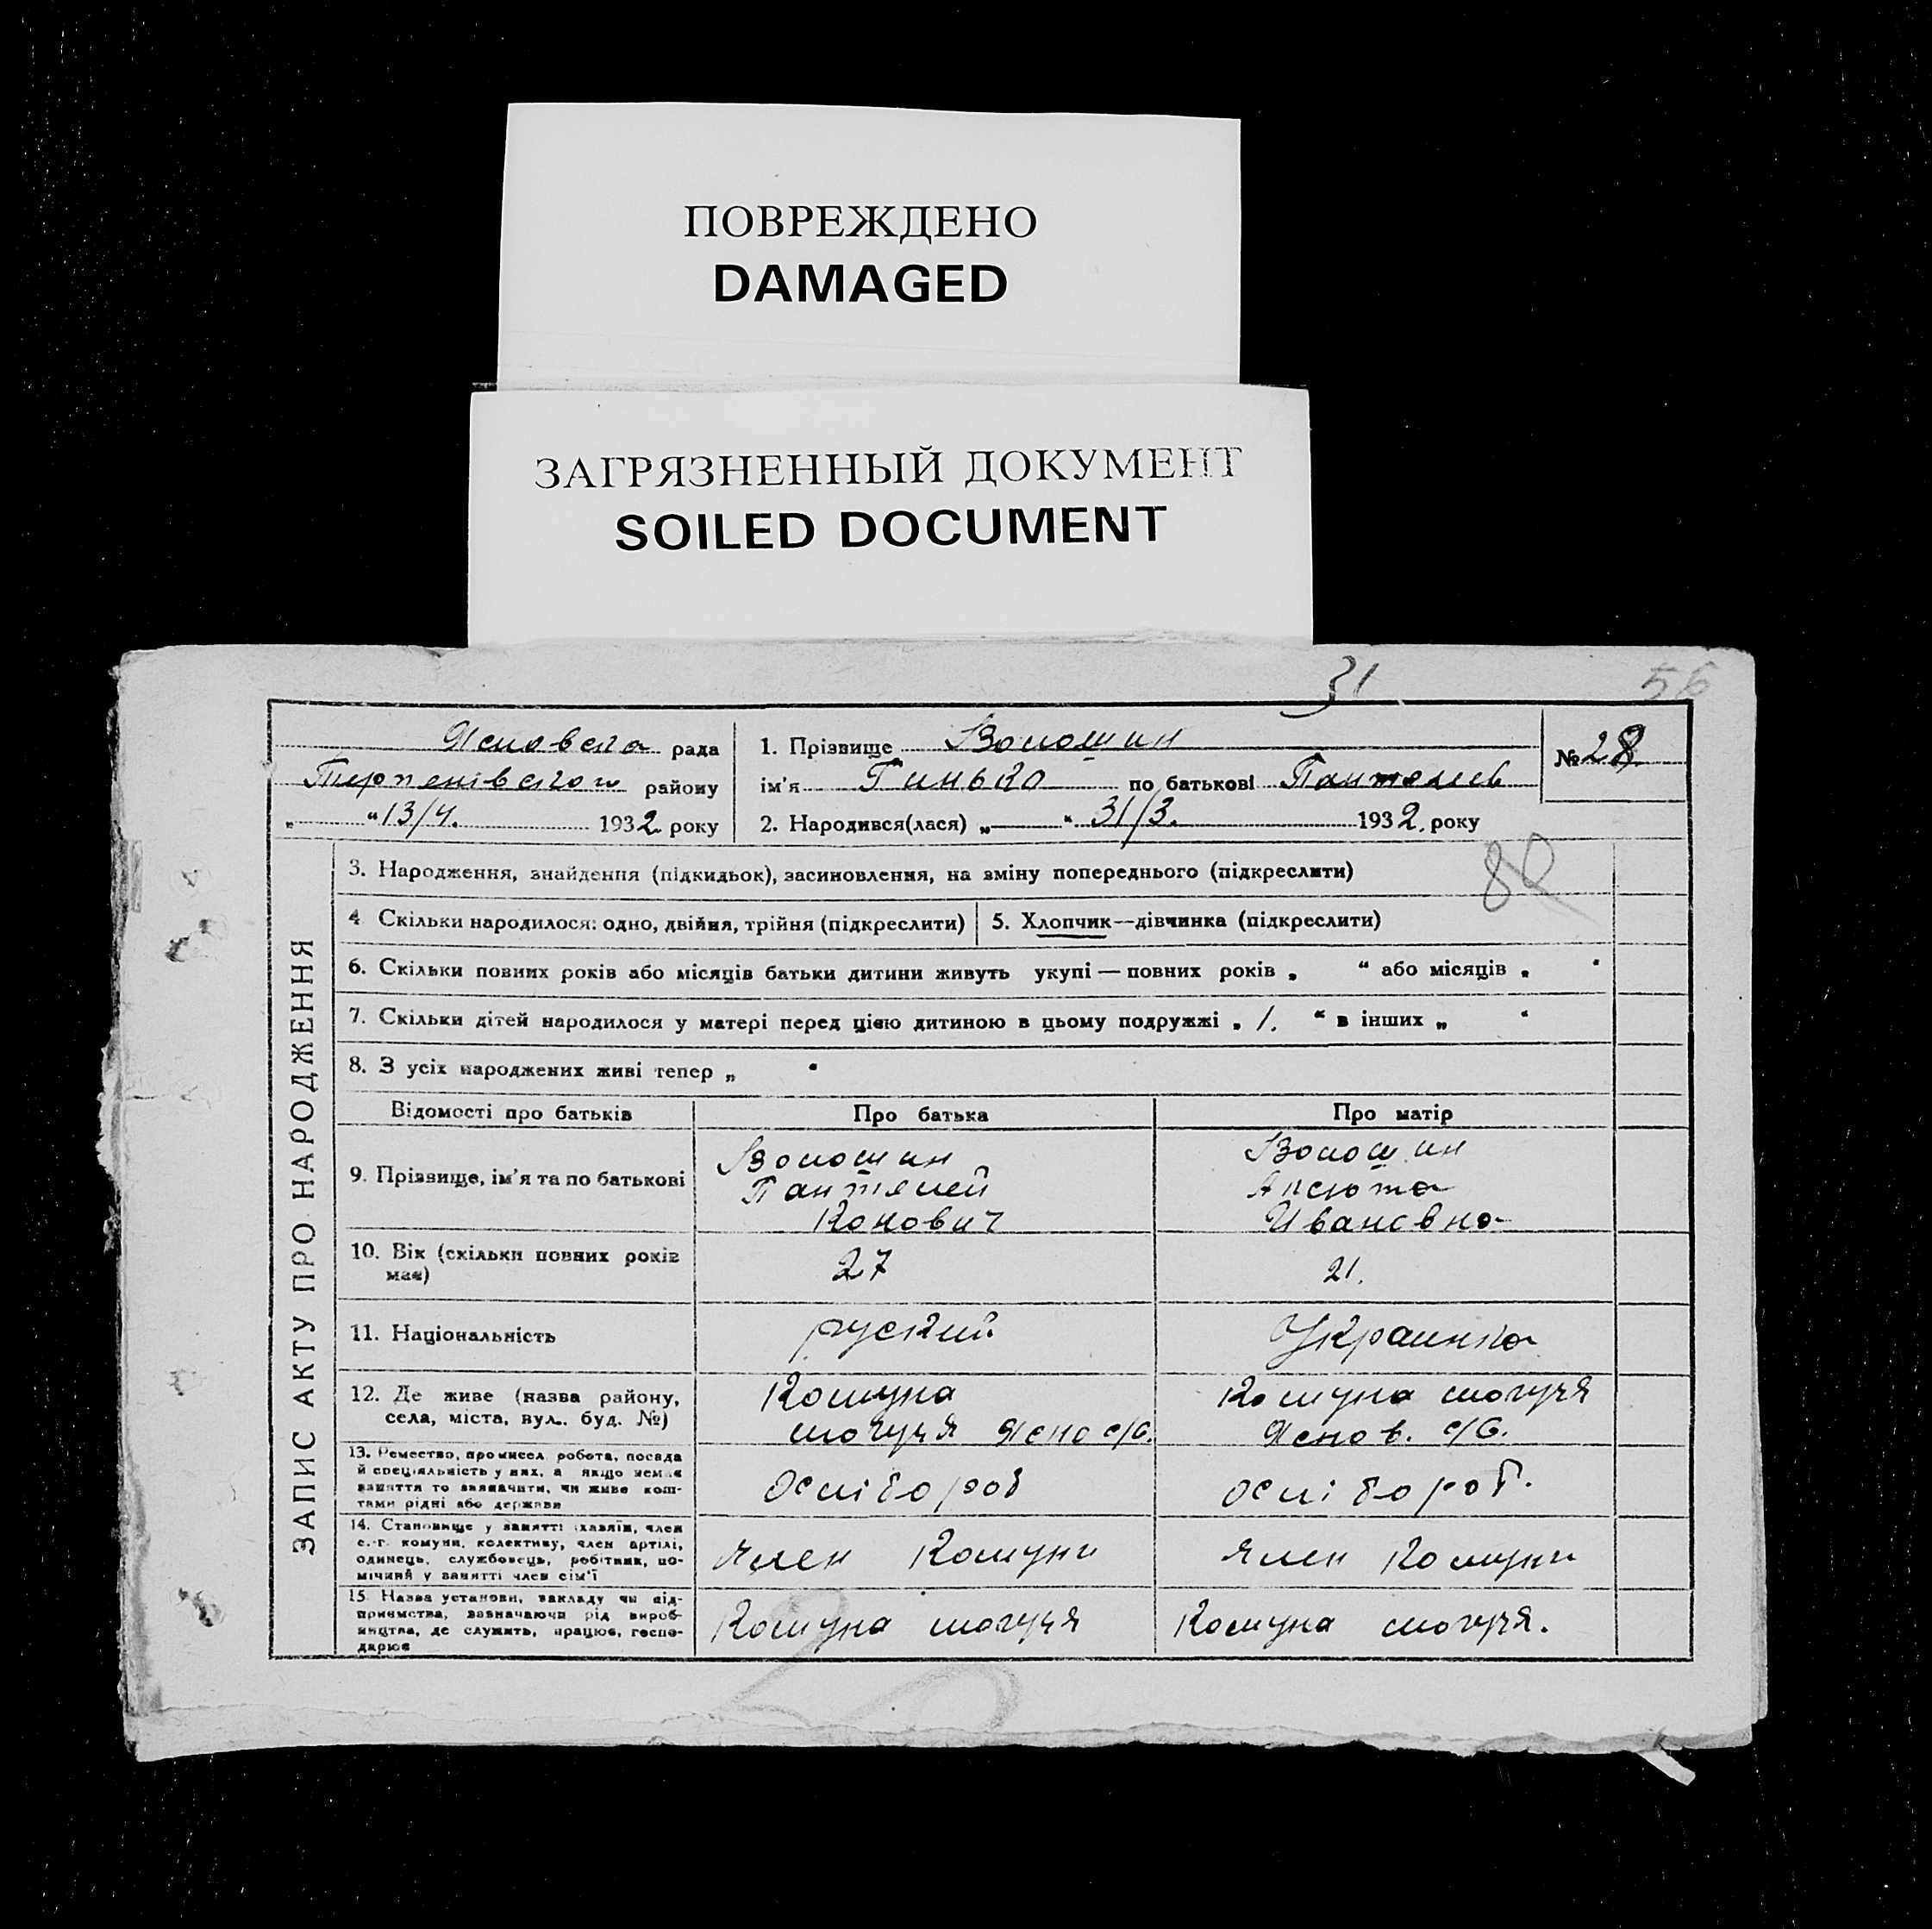 ПОВРЕЖДЕНО
DAMAGED
ЗАГРЯЗНЕННЫЙ ДОКУМЕНТ
SOILED DOCUMENT
31 56
рада
району
„ “ 13/4. 1932 року
1. Прізвище Волошин
ім'я Гинько по батькові
2. Народився(лася) „ “ 31/3. 1932. року
№ 28
ЗАПИС АКТУ ПРО НАРОДЖЕННЯ
3. Народження, знайдення (підкидьок), засиновлення, на зміну попереднього (підкреслити)
4 Скільки народилося: одно, двійня, трійня (підкреслити)
5. Хлопчик—дівчинка (підкреслити)
6. Скільки повних років або місяців батьки дитини живуть укупі — повних років „ “ або місяців „ “
7. Скільки дітей народилося у матері перед цією дитиною в цьому подружжі „ 1. “ в інших „ “
8. З усіх народжених живі тепер „ “
Відомості про батьків
Про батька
Про матір
9. Прізвище, ім'я та по батькові
Волошин
Пантялей
Конович
Волошин
Апсюта
Ивановна
10. Вік (скільки повних років
має)
27
21.
11. Національність
руский
Украинка
12. Де живе (назва району,
села, міста, вул. буд. №)
Комуна
могучя Ясно с/с.
Комуна могучя
Яснов. с/с.
13. Ремество, промисел, робота, посада
й спеціяльність у них, а якщо немає
заняття то зазначити, чи живе кош-
тами рідні або держави
14. Становище у занятті (хазяїн, член
с.-г. комуни, колективу, член артілі,
одинець, службовець, робітник, по-
мічний у занятті член сім'ї
член Комуни
член Комуни
15. Назва установи, закладу чи під-
приємства, зазначаючи рід вироб-
ництва, де служить, працює, госпо-
дарює
Комуна могучя
Комуна могучя.